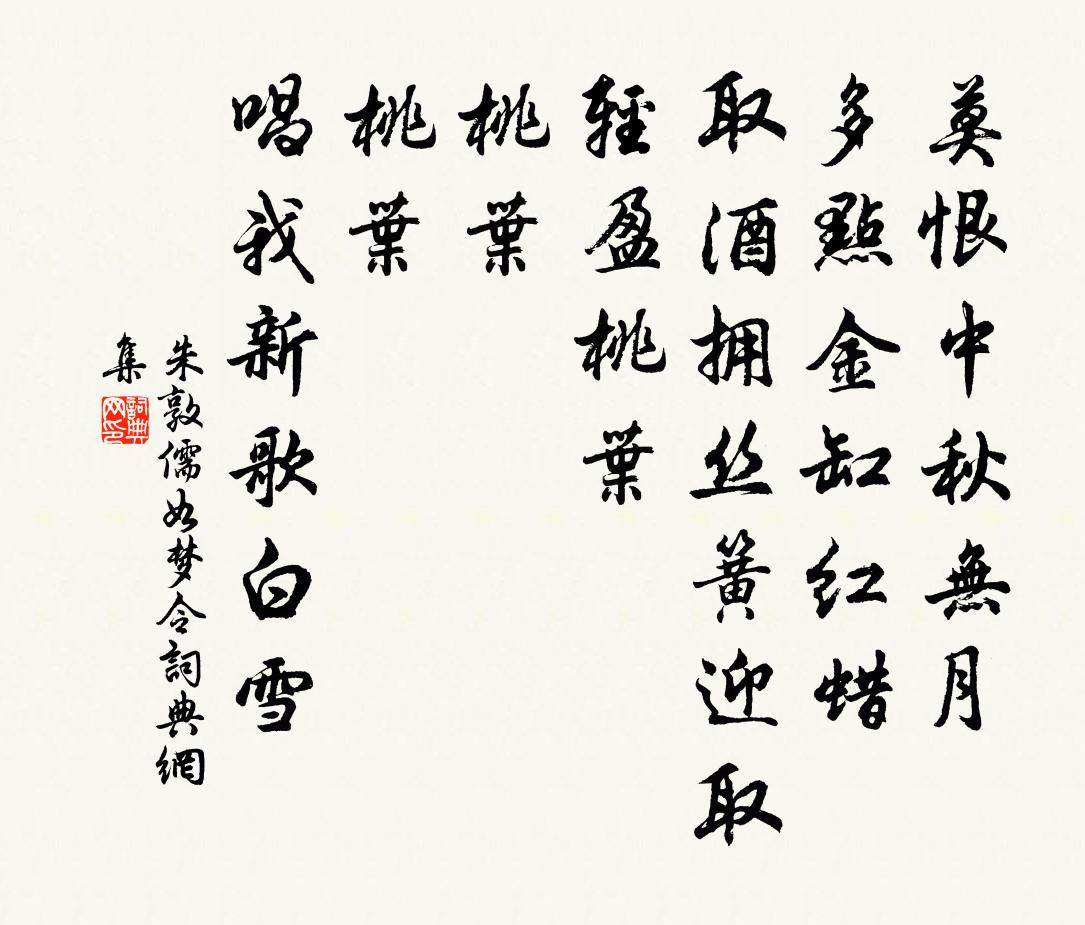 莫恨中秋無月
多點金缸红蜡
取酒拥丝簧迎取
輕盈桃葉
桃葉
桃葉
唱我新歌白雪
朱敦儒如梦令詞典網
集
詞典
网印